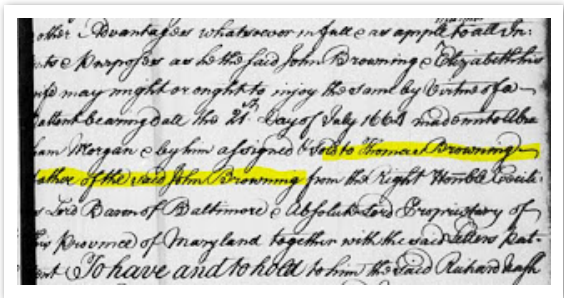 other Advantages whatsoever in full & as ample to all In:
nts & Purposes as he the said John Browning & Elizabeth his
wife may might or ought to injoy the same by Virtue of a
Pattent bearing date the 21st Day of July 1664 made unto Abra
ham Morgan & by him assigned & sold to Thomas Browning
father of the said John Browning from the Right Honble Cecili
s Lord Baron of Baltimore & Absolute Lord Proprietary of
this Province of Maryland together with the said Letters Pat-
ent To have and to hold to him the said Richard Nash